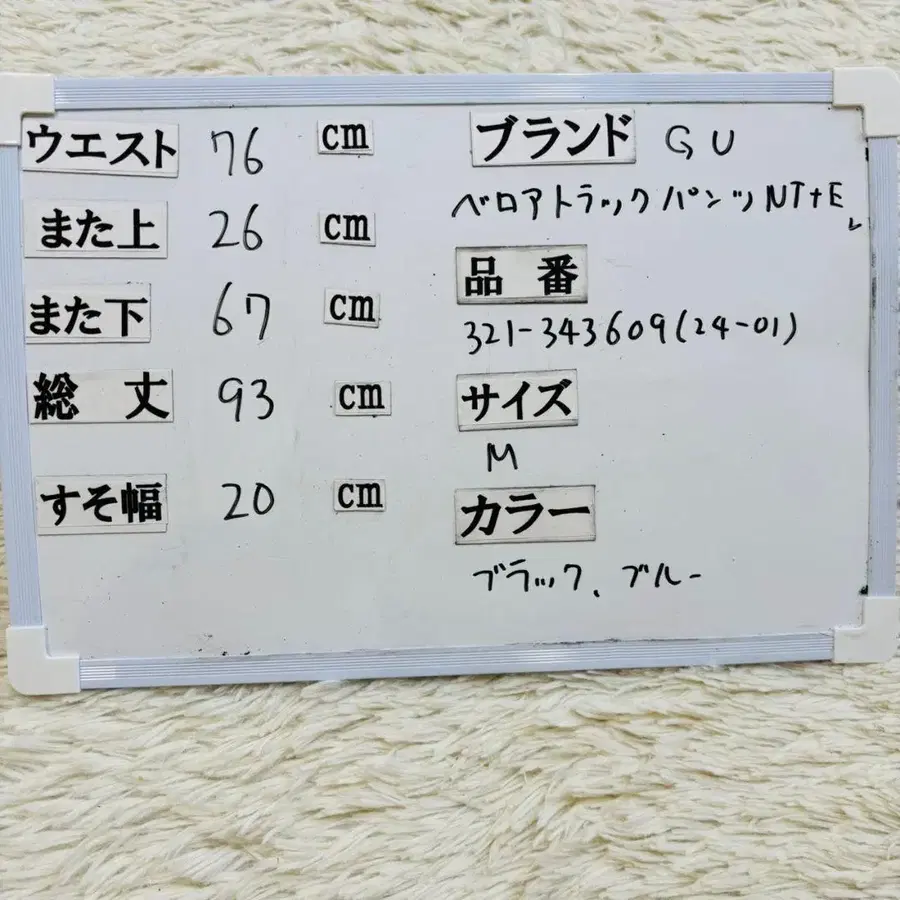 ウエスト 76 cm
また上 26 cm
また下 67 cm
総 丈 93 cm
すそ幅 20 cm
ブランド GU
ベロアトラックパンツNT+E
品 番
321-343609(24-01)
サイズ
M
カラー
ブラック、ブルー